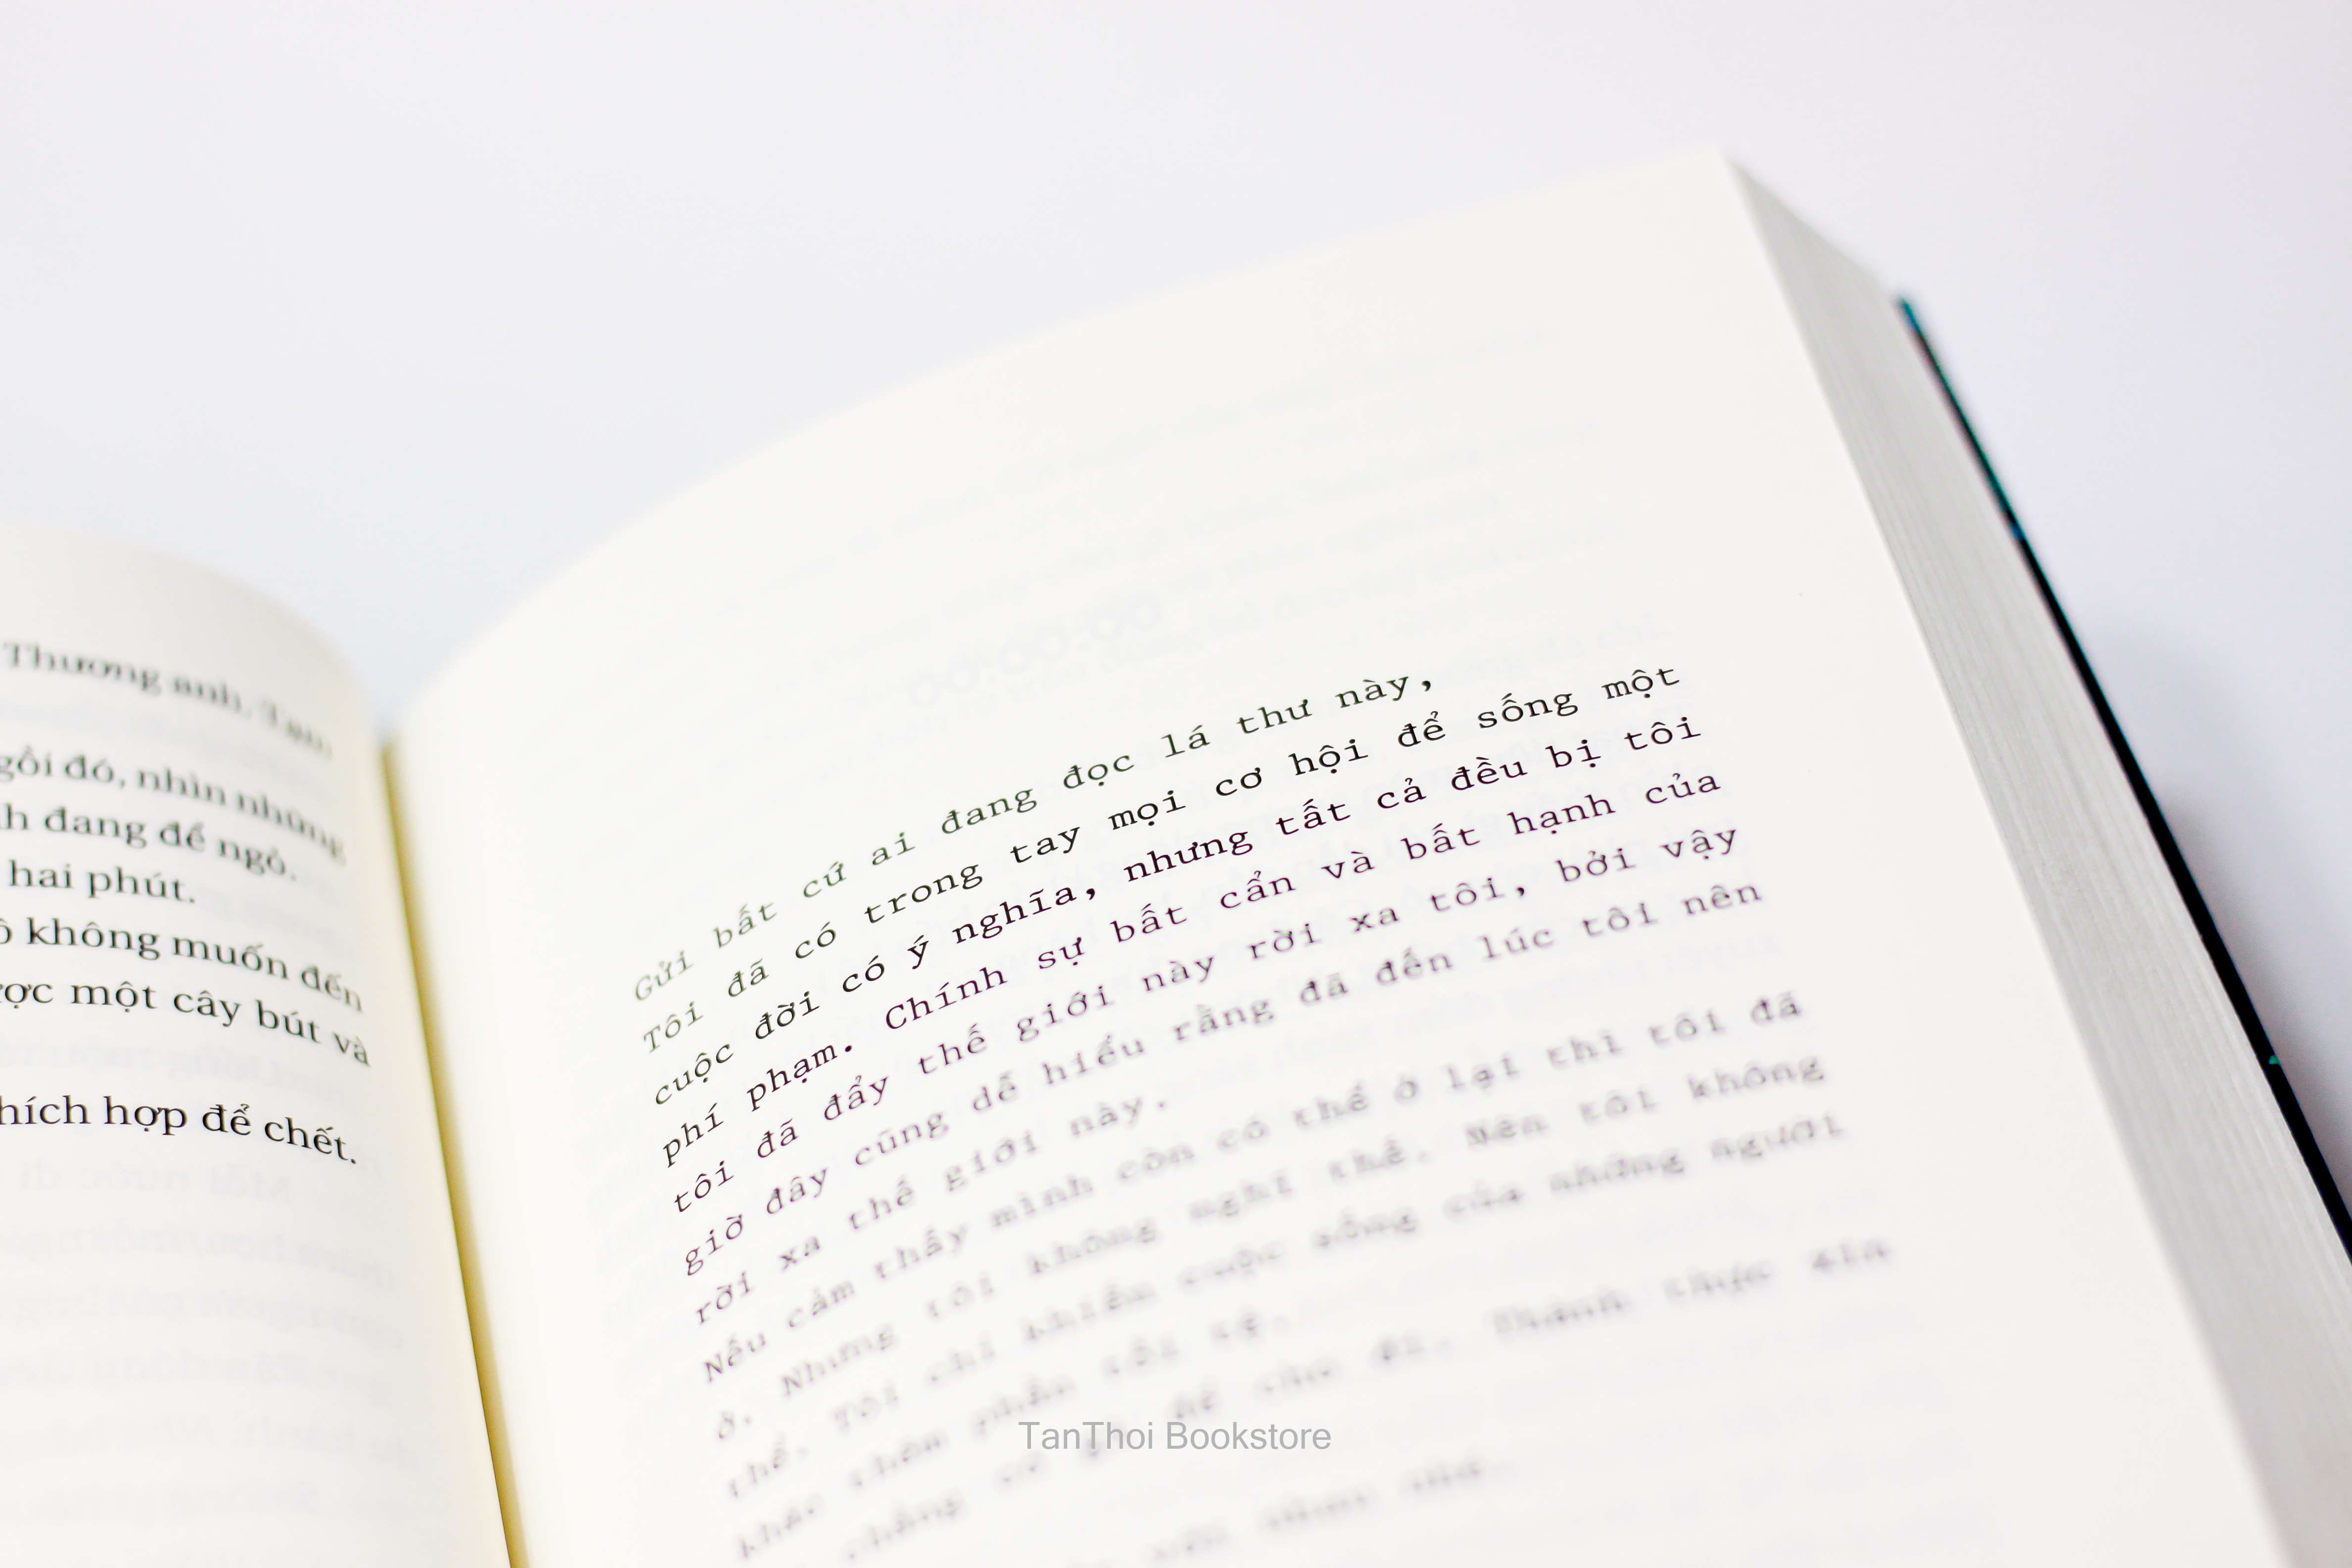 Thương anh. Tạm
gồi đó, nhìn những
h đang để ngỏ.
hai phút.
không muốn đến
ược một cây bút và
hích hợp để chết.
Gửi bất cứ ai đang đọc lá thư này,
Tôi đã có trong tay mọi cơ hội để sống một
cuộc đời có ý nghĩa, nhưng tất cả đều bị tôi
phí phạm. Chính sự bất cẩn và bất hạnh của
tôi đã đẩy thế giới này rời xa tôi, bởi vậy
giờ đây cũng dễ hiểu rằng đã đến lúc tôi nên
rời xa thế giới này.
Nếu cảm thấy mình còn có thể ở lại thì tôi đã
ở. Nhưng tôi không nghĩ thế. Nên tôi không
thể. Tôi chỉ khiến cuộc sống của những người
khác thêm phần tồi tệ.
chẳng có gì để cho đi. Thành thực xin
TanThoi Bookstore